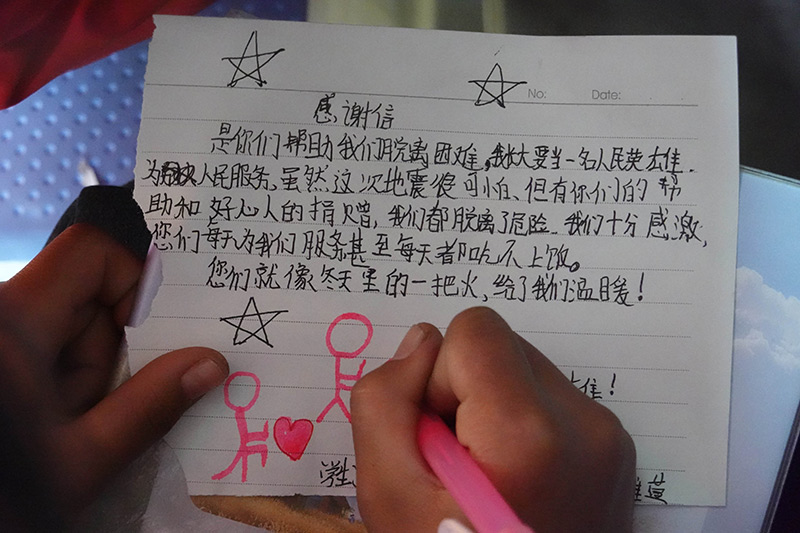 No:
Date:
感谢信
是你们帮助我们脱离困难。我长大要当一名人民英雄.
为人民服务。虽然这次地震很可怕、但有你们的帮
助和好心人的捐赠，我们都脱离了危险. 我们十分感激,
您们每天为我们服务甚至每天都吃不上饭。
您们就像冬天里的一把火，给了我们温暖！
雄！
学生
萱